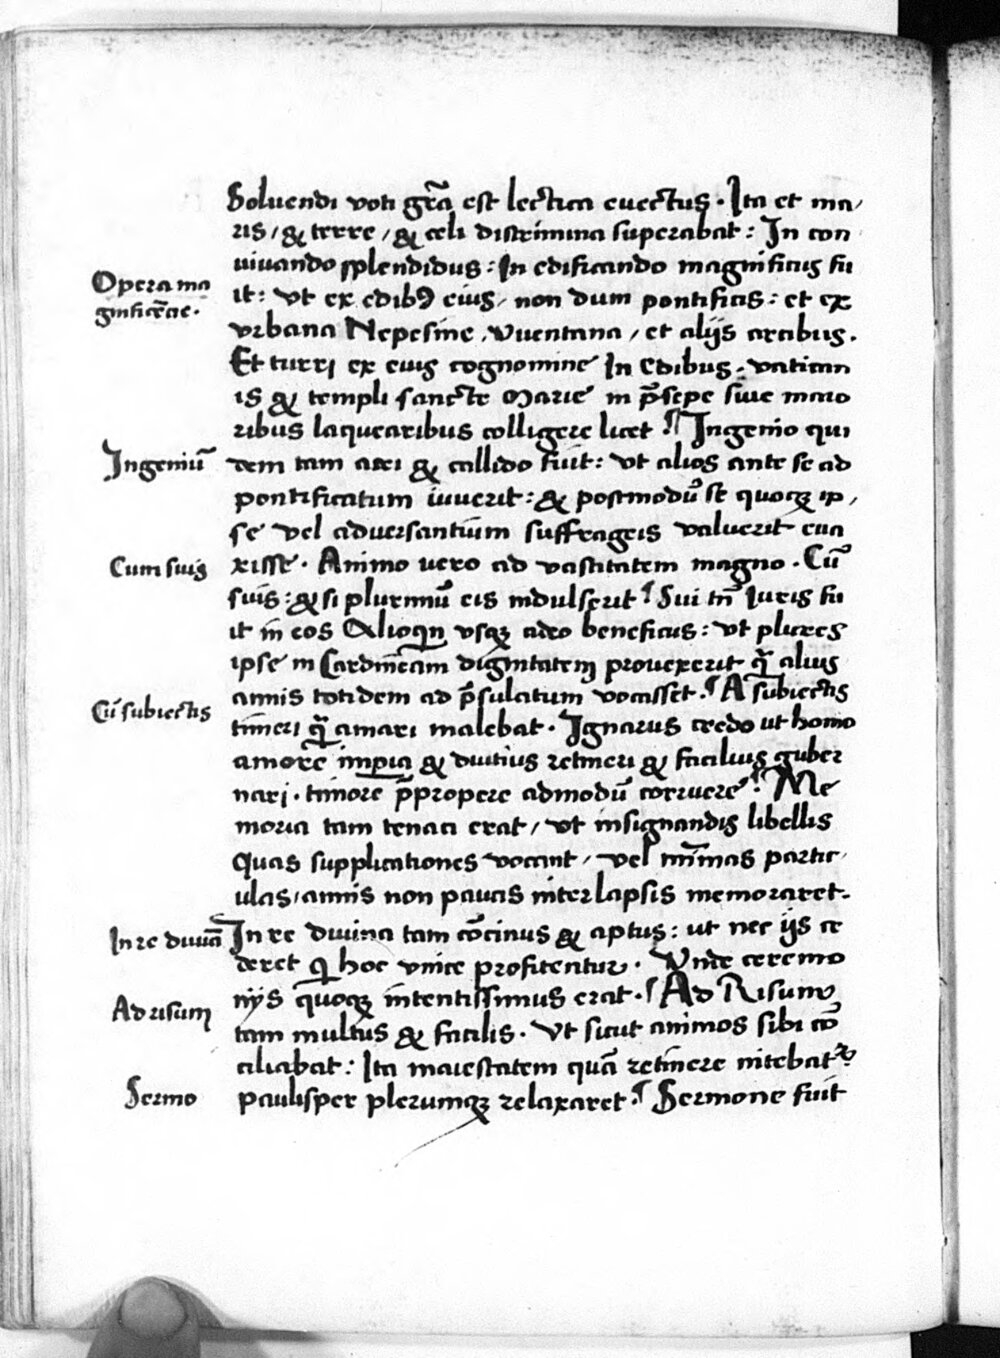 Soluendi voti gr̄a est lectica euectus. Ita et ma/
ris/ & terre/ & celi discrimina superabat: In con
uiuando splendidus: In edificando magnificus fu
Opera ma
gnificē̄cie.
it: vt ex edibꝰ eius/ non dum pontificis: et ex
vrbana Nepesine, Viuentana/ et alijs arcibus.
Et turri ex eius cognomine In Edibus. vatican
is & templi sancte Marie in p̄sepe siue maio
ribus laquearibus colligere licet ¶ Ingenio qui
Ingeniū
dem tam acri & callido fuit: vt alios ante se ad
pontificatum iuuerit: & postmodū se quoqꝫ ip/
se vel aduersantium suffrageis valuerit eua
Cum suis
xisse. Animo vero ad vastitatem magno. Cū
suis: & si plurimū eis indulserit ¶ Sui tn̄ Iuris fu
it in eos Alioqn̄ vsqꝫ adeo beneficus: vt plures
ipse in Cardīneam dignitatem prouexerit q̄ alius
annis totidem ad p̄sulatum vocasset. ¶ A subiectis
Cū subiectis
timeri q̄ amari malebat. Ignarus credo ut homo
amore imp̲ia & diutius retineri & facilius guber
nari. timore p̄propere admodū corruere ¶ Me
moria tam tenaci erat/ vt insignandis libellis
Quas supplicationes vocant/ vel mīmas partic/
ulas/ annis non paucis interlapsis memoraret.
In re diuīa
In re diuina tam cōcinus & aptus: ut nec ijs ce
deret q̄ hoc vnice profitentur. Vnde ceremo
nijs quoqꝫ intentissimus erat. ¶ Ad Risum
Ad risum
tam multus & facilis. Vt sicut animos sibi cō
ciliabat: Ita maiestatem quā retinere nitebatꝛ
Sermo
paulisper plerumqꝫ relaxaret. ¶ Sermone fuit